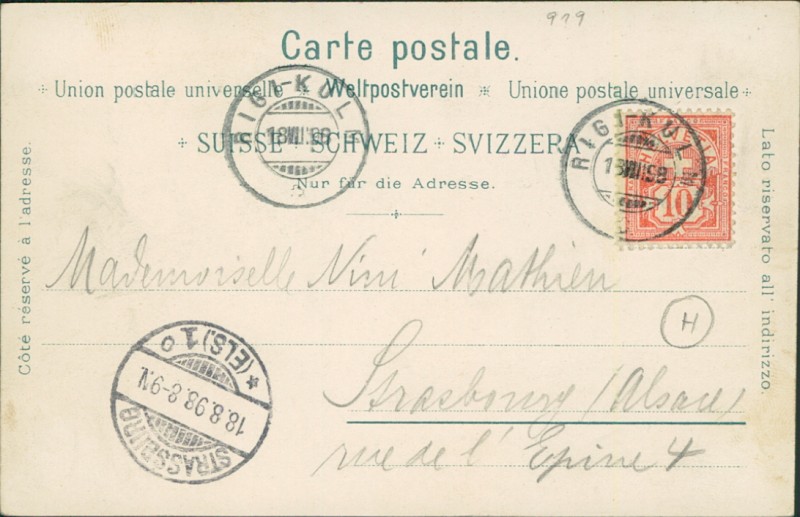 919
Carte postale.
Union postale universelle Weltpostverein Unione postale universale
SUISSE SCHWEIZ SVIZZERA
Nur für die Adresse.
Côté réservé à l'adresse.
Lato riservato all' indirizzo.
RIGI-KULM
18 VIII 98
RIGI-KULM
18 VIII 98
10
Mademoiselle Nini Mathieu
H
Strasbourg (Alsace)
rue de l'Epine 4
STRASSBURG
18.8.98.8-9N.
* (ELS.) 1 o